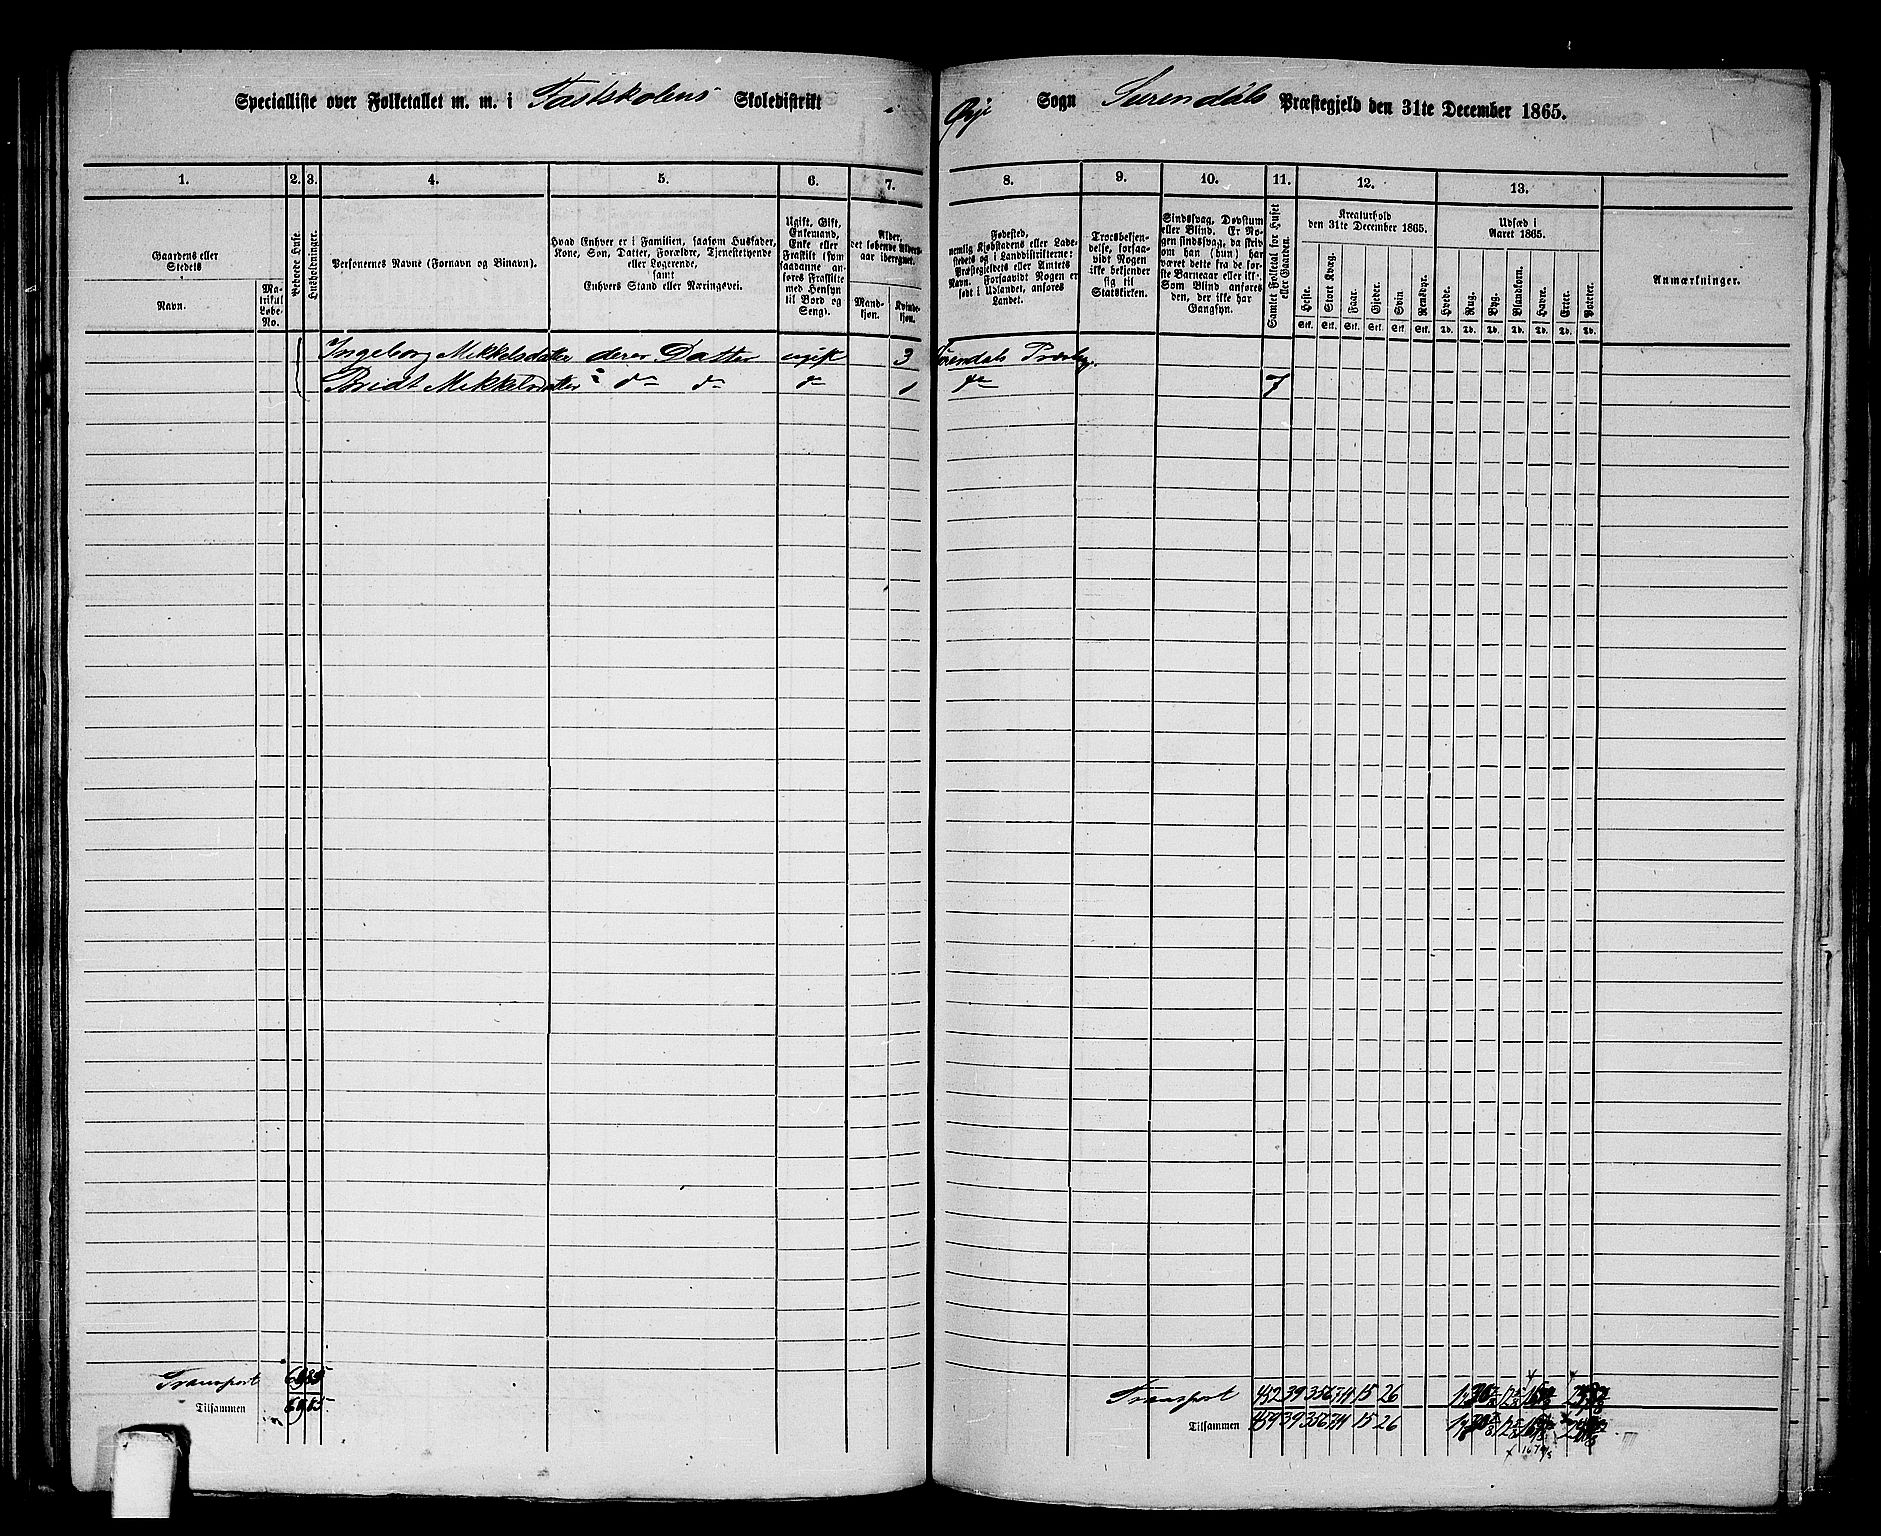 Specialliste over Folketallet m. m. i Fastskolens Skoledistrikt
Øie Sogn Surendals Præstegjeld den 31te December 1865.
1. 2. 3. 4. 5. 6. 7. 8. 9. 10. 11. 12. 13.
Gaardens eller Stedets
Navn.
Matrikul Løbe-No.
Beboede Huse.
Husholdninger.
Personernes Navne (Fornavn og Binavn).
Hvad Enhver er i Familien, saasom Husfader,
Kone, Søn, Datter, Forældre, Tjenestetyende
eller Logerende,
samt
Enhvers Stand eller Næringsvei.
Ugift, Gift,
Enkemand,
Enke eller
Fraskilt (som
saadanne anføres
Fraskilte
med Hensyn
til Bord og
Seng).
Alder,
det løbende Alders-
aar iberegnet.
Mandkjøn.
Kvindekjøn.
Fødested,
nemlig Kjøbstadens eller Ladestedets
og i Landdistrikterne:
Præstegjeldets eller Amtets
Navn. Forsaavidt Nogen er
født i Udlandet, anføres
Landet.
Troesbekjendelse,
forsaavidt
Nogen
ikke bekjender
sig til
Statskirken.
Sindssvag, Døvstum
eller Blind. Er Nogen
sindssvag, da skiv
om han (hun) har
været dette fra de første
Barneaar eller ikke.
Som Blind anføres
den, der ikke har
Gangsyn.
Samlet Folketal for Huset eller Gaarden.
Kreaturhold
den 31te December 1865.
Heste. Stort Kvæg. Faar. Gjeder. Svin Rensdyr.
Stk. Stk. Stk. Stk. Stk. Stk.
Udsæd i
Aaret 1865.
Hvede. Rug. Byg. Blandkorn. Havre. Erter. Poteter.
Td. Td. Td. Td. Td. Td. Td.
Anmærkninger.
Ingeborg Mikkelsdatter deres Datter ugift 3 Surendals Præstg.
Bridt Mikkelsdatter d° d° d° 1 d° 7
Transport Transport 452 39 356 314 15 26
Tilsammen Tilsammen 459 39 356 314 15 26